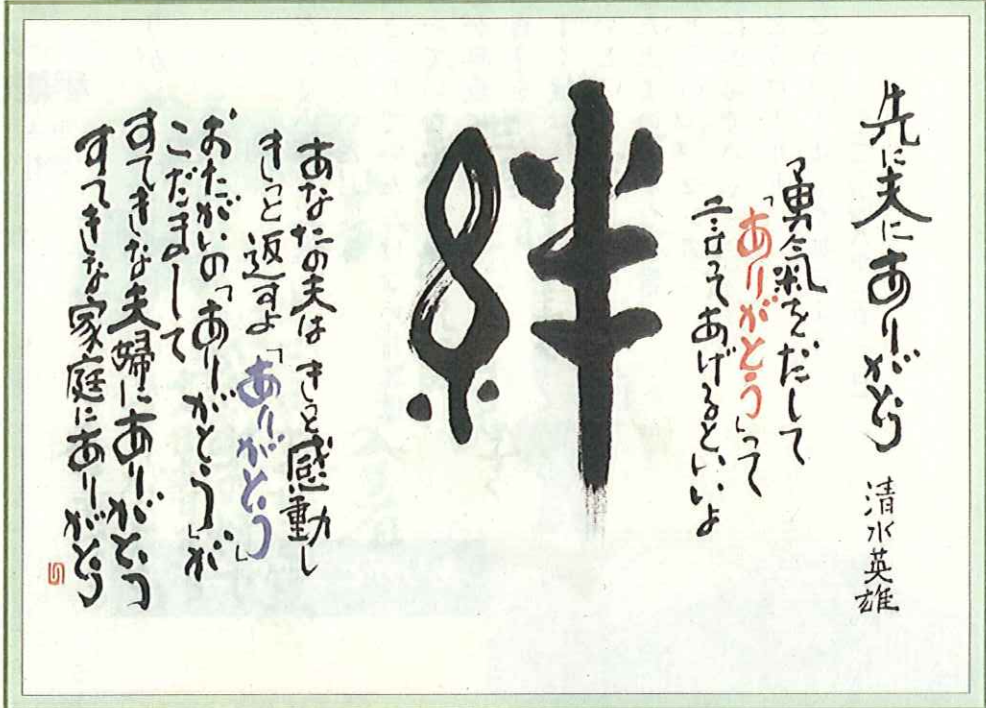 先に夫にありがとう 清水英雄
勇氣をだして
「ありがとう」って
言ってあげるといいよ
絆
あなたの夫は きっと感動し
きっと返すよ「ありがとう」
おたがいの「ありがとう」が
こだまして
すてきな夫婦にありがとう
すてきな家庭にありがとう